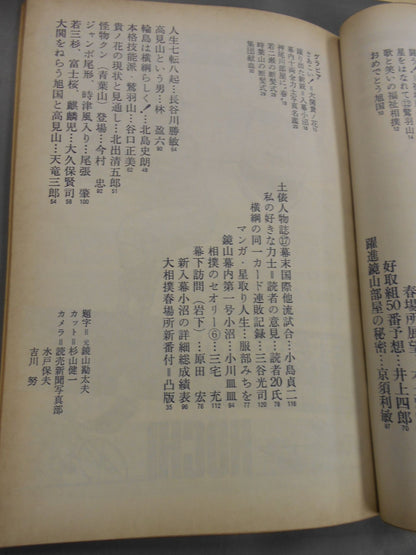 星をはなれて⑫鷲羽山 14
歌と笑いの福祉相撲 32
おめでとう
春場所展望
好取組50番予想…井上四郎 70
躍進鏡山部屋の秘密…京須利敏 97
グラビア
さあこい！ 大関貴ノ花
躍り出た新鋭＝入幕小沼
幕内十両全力士写真名鑑
神尾山部屋の“春”
若二瀬の断髪式
時葉山の断髪式
集団献血
土俵人物誌⑰幕末国際他流試合…小島貞二 116
私の好きな力士＝読者の意見…読者20氏 78
横綱の同一カード連敗記録…三谷光司 120
マンガ・星取り人生…服部みちを 77
鏡山幕内第一号小沼…小川皿皿 94
相撲のセオリー⑥…三宅充 112
幕下訪問（岩下）…原田宏 76
新入幕小沼の詳細総成績表 96
大相撲春場所新番付＝凸版 35
人生七転八起…長谷川勝敏 64
高見山という男…林盈六 92
輪島は横綱らしく！…北島史朗 48
本格技能派・鷲羽山…谷口正美 62
貴ノ花の現状と見通し…北出清五郎 51
怪物クン（青葉山）登場…今村忠 92
ジャンボ尾形、時津風入り…尾張肇 100
若三杉、富士桜、麒麟児…大久保賢司 58
大関をねらう旭国と高見山…天竜三郎 54
題字＝元鏡山勘太夫
カット＝杉山健一
カメラ＝読売新聞写真部
水戸保夫
吉川努